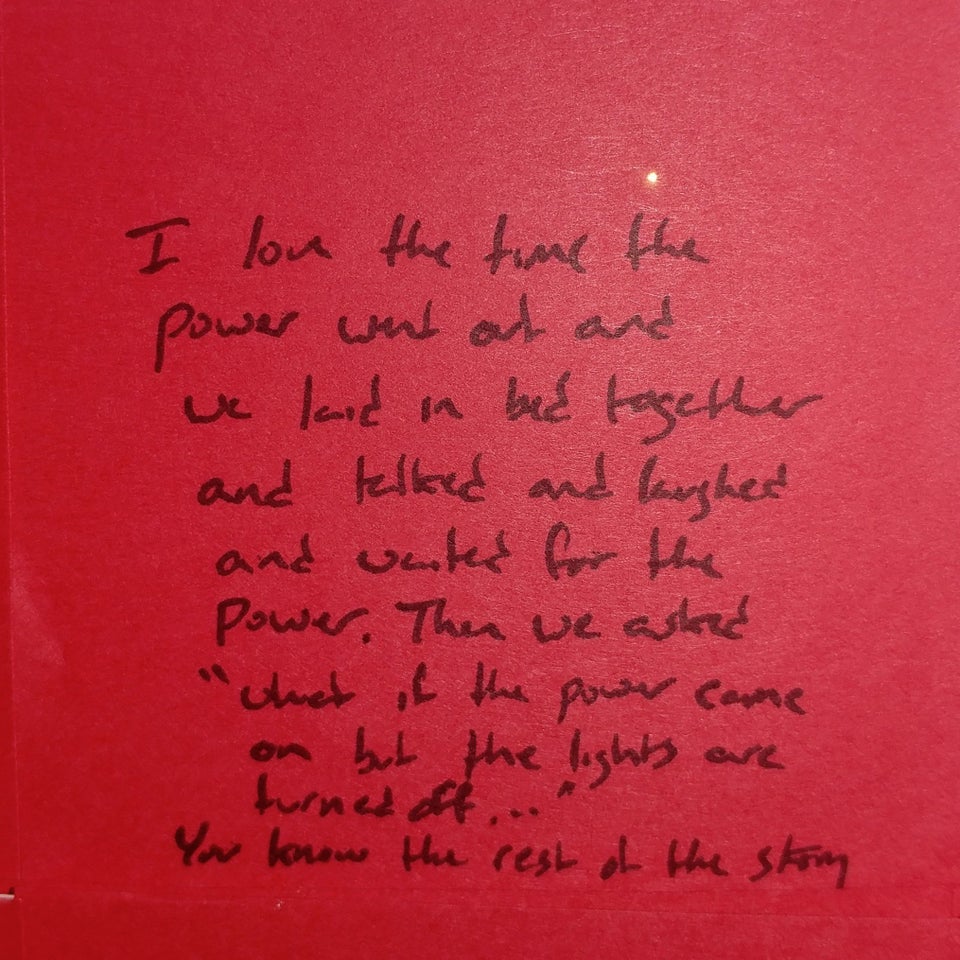 I love the time the
power went out and
we laid in bed together
and talked and laughed
and waited for the
power. Then we asked
"what if the power came
on but the lights are
turned off..."
You know the rest of the story